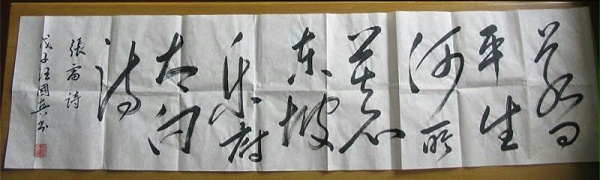 若问
平生
何所
慕
东坡
乐府
太白
诗
張 詩
戊子汪國真书